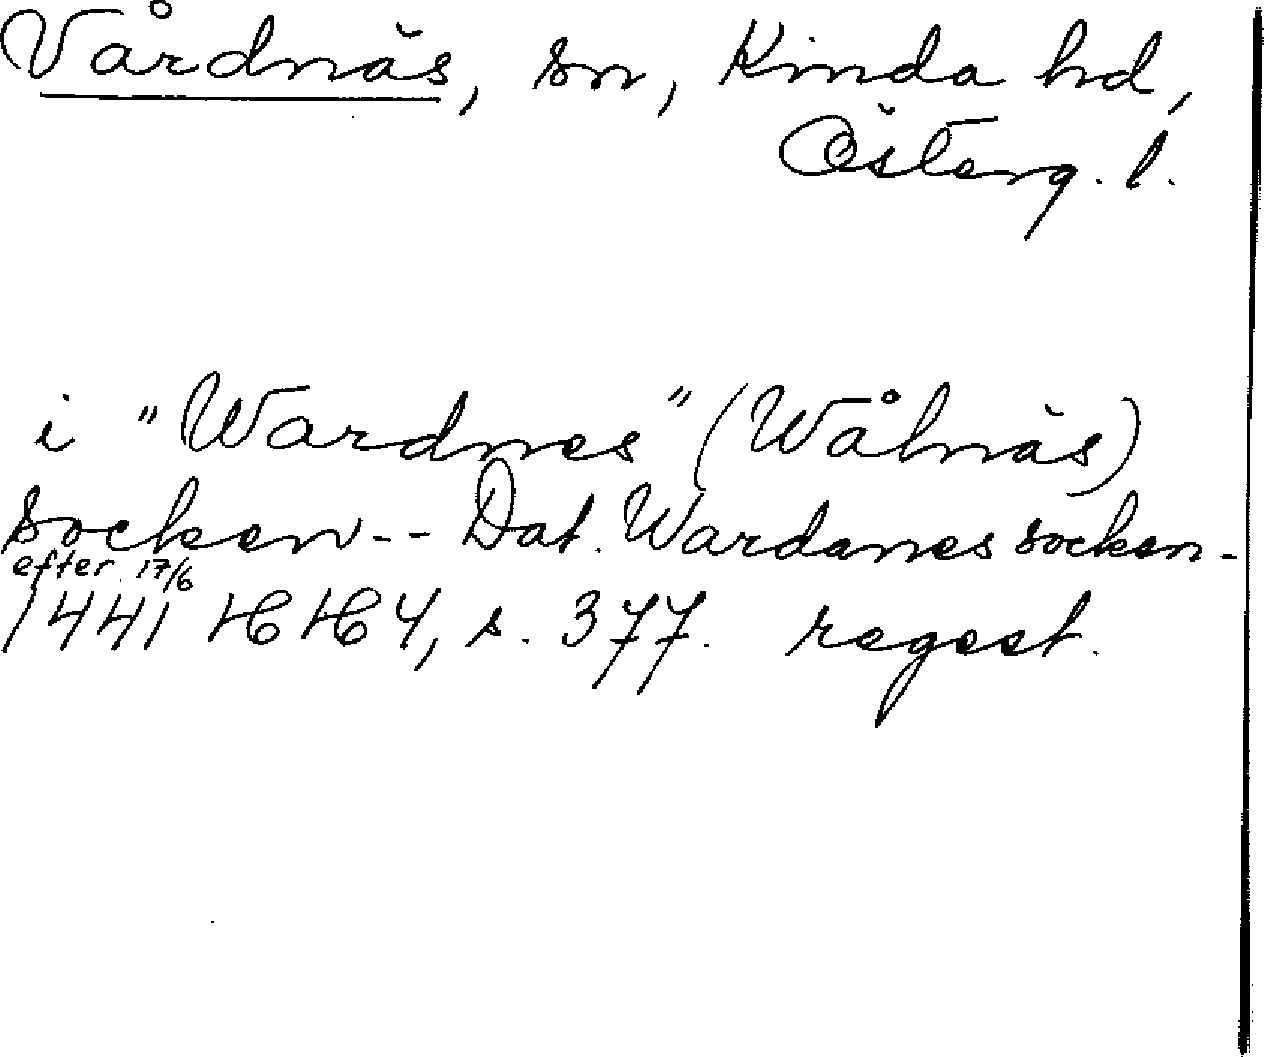 Vårdnäs, sn, Kinda hd,
Österg. l.
i "Wardnes" (Wålnäs)
socken -- Dat. Wardanes socken -
efter 17/6
1441 HH 4, s. 377. regest.